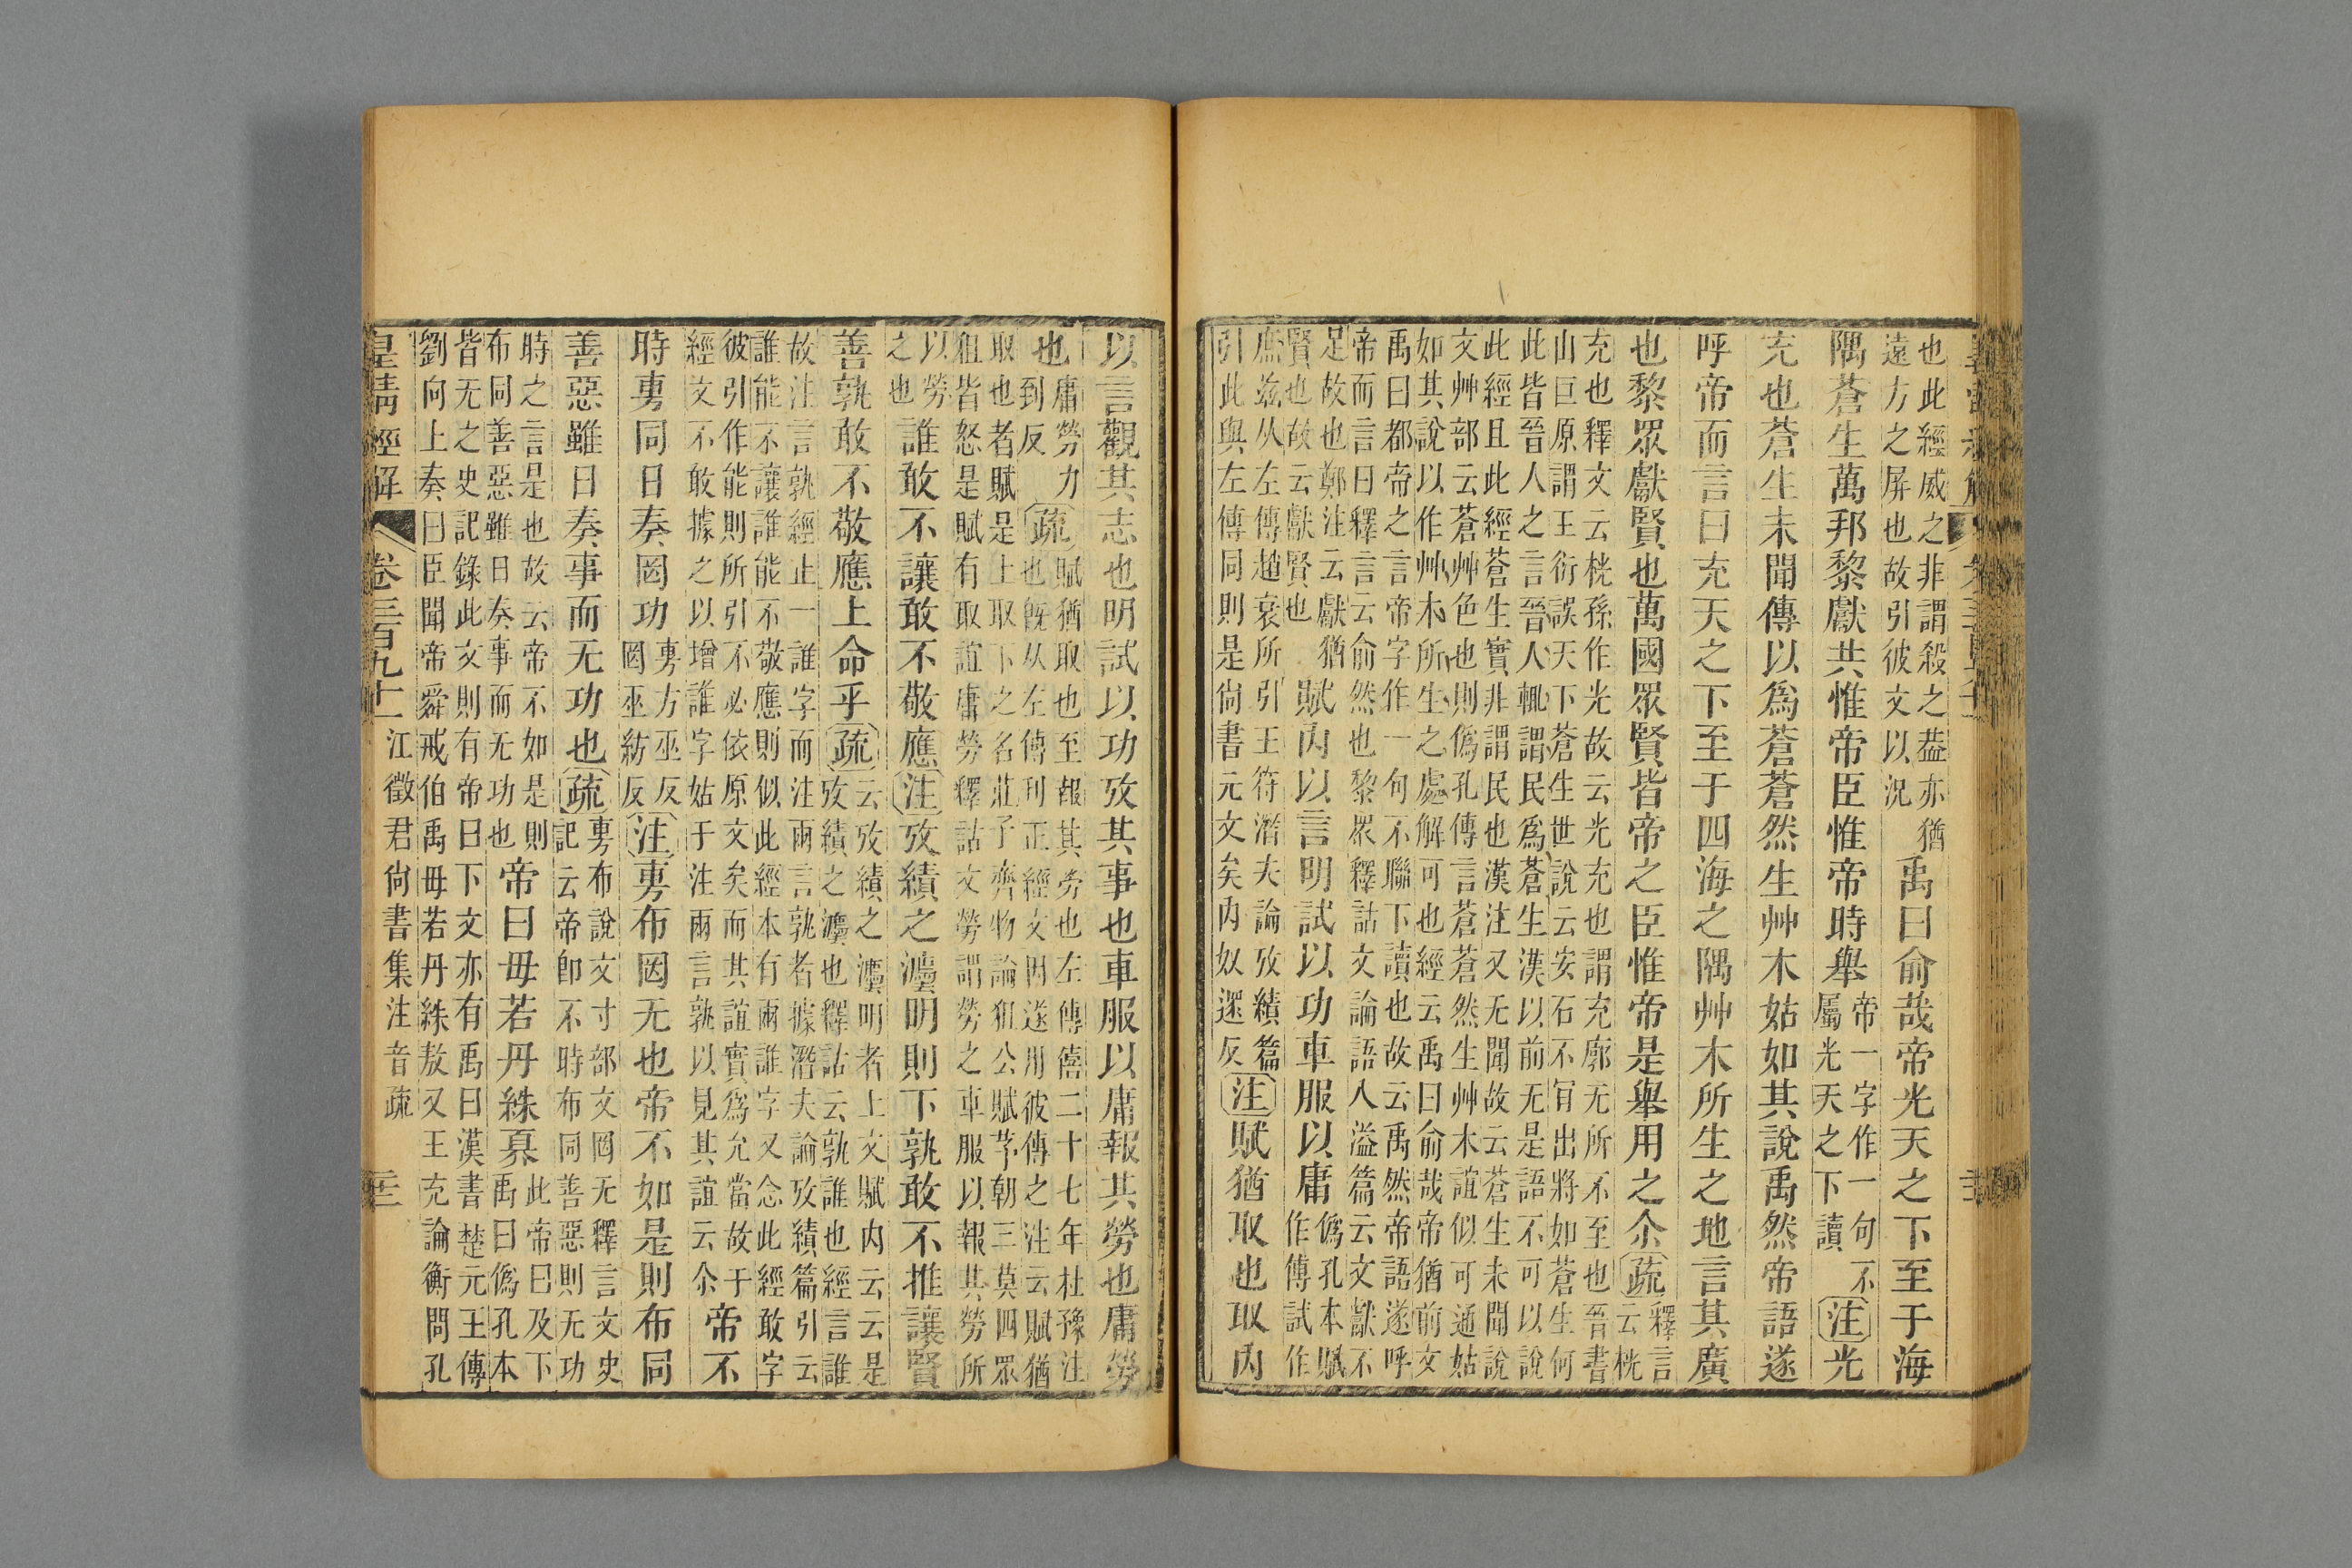 也此經威之非謂殺之葢亦猶
遠方之屏也故引彼文以況
禹曰俞哉帝光天之下至于海
隅蒼生萬邦黎獻共惟帝臣惟帝時舉
帝一字作一句不
屬光天之下讀
注光
充也蒼生未聞傳以爲蒼蒼然生艸木姑如其說禹然帝語遂
呼帝而言曰充天之下至于四海之隅艸木所生之地言其廣
也黎眾獻賢也萬國眾賢皆帝之臣惟帝是舉用之尒疏
釋言
云桄
充也釋文云桄孫作光故云光充也謂充廓无所不至也晉書
山巨原謂王衍誤天下蒼生世說云安石不肎出將如蒼生何
此皆晉人之言晉人輒謂民爲蒼生漢以前无是語不可以說
此經且此經蒼生實非謂民也漢注又无聞故云蒼生未聞說
文艸部云蒼艸色也則僞孔傳言蒼蒼然生艸木誼似可通姑
如其說以作艸木所生之處解可也經云禹曰俞哉帝猶前文
禹曰都帝之言帝字作一句不聯下讀也故云禹然帝語遂呼
帝而言曰釋言云俞然也黎眾釋詁文論語人溢篇云文獻不
足故也鄭注云獻猶
賢也故云獻賢也
賦內以言明試以功車服以庸
僞孔本賦
作傅試作
庶茲从左傳趙衰所引王符潛夫論攷績篇
引此與左傳同則是尙書元文矣內奴還反
注賦猶取也取內
以言觀其志也明試以功攷其事也車服以庸報其勞也庸勞
也
庸勞力
到反
疏
賦猶取也至報其勞也左傳僖二十七年杜豫注
也旣从左傳刊正經文因遂用彼傳之注云賦猶
取也者賦是上取下之名莊子齊物論狙公賦芧朝三莫四眾
狙皆怒是賦有取誼庸勞釋詁文勞謂勞之車服以報其勞所
以勞
之也
誰敢不讓敢不敬應注攷績之灋明則下孰敢不推讓賢
善孰敢不敬應上命乎疏
云攷績之灋明者上文賦內云云是
攷績之灋也釋詁云孰誰也經言誰
故注言孰經止一誰字而注兩言孰者據潛夫論攷績篇引云
誰能不讓誰能不敬應則似此經本有兩誰字又念此經敢字
彼引作能則所引不必依原文矣而其誼實爲允當故于
經文不敢據之以增誰字姑于注兩言孰以見其誼云尒
帝不
時旉同日奏罔功
旉方巫反
罔巫紡反
注旉布罔无也帝不如是則布同
善惡雖日奏事而无功也疏
旉布說文寸部文罔无釋言文史
記云帝卽不時布同善惡則无功
時之言是也故云帝不如是則
布同善惡雖日奏事而无功也
帝曰毋若丹絑奡
此帝曰及下
禹曰僞孔本
皆无之史記錄此文則有帝曰下文亦有禹曰漢書楚元王傳
劉向上奏曰臣聞帝舜戒伯禹毋若丹絑敖又王充論衡問孔
皇淸經解
卷三百九十一
江徵君尙書集注音疏